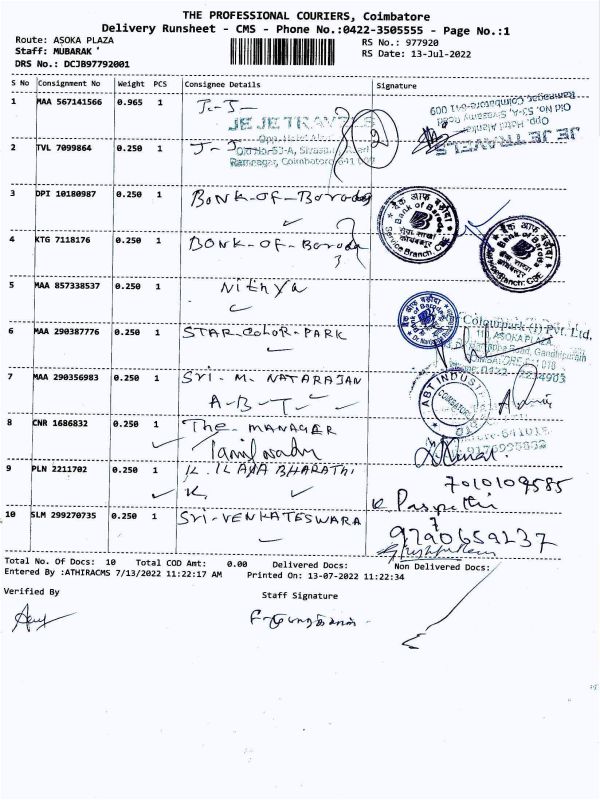 THE PROFESSIONAL COURIERS, Coimbatore
Delivery Runsheet - CMS - Phone No.:0422-3505555 - Page No.:1
Route: ASOKA PLAZA RS No.: 977920
Staff: MUBARAK ' RS Date: 13-Jul-2022
DRS No.: DCJB97792001
S No Consignment No Weight PCS Consignee Details Signature
1 MAA 567141566 0.965 1 J-J-
JE JE TRAVELS
Opp. Hotel
Old No.53-A,
Ramnagar, Coimbatore-641 009
2
JE JE TRAVELS
Opp. Hotel Alankar
Old No. 53-A, Sivasamy Road
Ramnagar, Coimbatore-641 009
2 TVL 7099864 0.250 1 J-J-
3 DPI 10180987 0.250 1 BONK-OF-Baroda
बैंक ऑफ़ बड़ौदा
Bank of Baroda
Service Branch, CBE
4 KTG 7118176 0.250 1 BONK-OF-Baroda
बैंक ऑफ़ बड़ौदा
Bank of Baroda
Service Branch, CBE
5 MAA 857338537 0.250 1 Nithya
6 MAA 290387776 0.250 1 STAR-COLOR-PARK
Colourpark (I) Pvt. Ltd.
ASOKA PLAZA
Gandhipuram
7 MAA 290356983 0.250 1 Sri-M-NATARAJAN
A-B-T-
ABT INDUST
COIMBATORE
8 CNR 1686832 0.250 1 The-MANAGER
Tamilnadu
9 PLN 2211702 0.250 1 K.ILAYABHARATHI
K,
7010109585
10 SLM 299270735 0.250 1 Sri-VENKATESWARA
9790659237
Total No. Of Docs: 10 Total COD Amt: 0.00 Delivered Docs: Non Delivered Docs:
Entered By :ATHIRACMS 7/13/2022 11:22:17 AM Printed On: 13-07-2022 11:22:34
Verified By Staff Signature